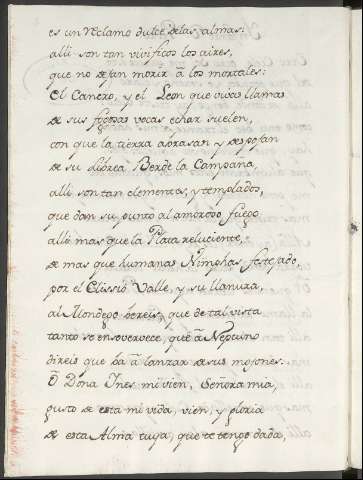 es un reclamo dulce delas almas:
alli son tan vivificos los aires,
que no dejan morir à los mortales:
El Cancro, y el Leon que vivas llamas
de sus fogosas vocas echar suelen,
con que la tierra abrasan y despojan
de su librea Berde la Campaña,
alli son tan clementes, y templados,
que dan su punto al amoroso fuego
alli mas que la Plata reluciente,
de mas que humanas Nimphas festejado
por el Elissio Valle, y su llanura,
al Mondego bereis, que de tal vista
tanto se ensovervece, que à Neptuno
direis que ba à lanzar de sus mojones:
O Doña Ines mi vien, Señora mia,
gusto de esta mi vida, vien, y gloria
de esta Alma tuya, que te tengo dada,